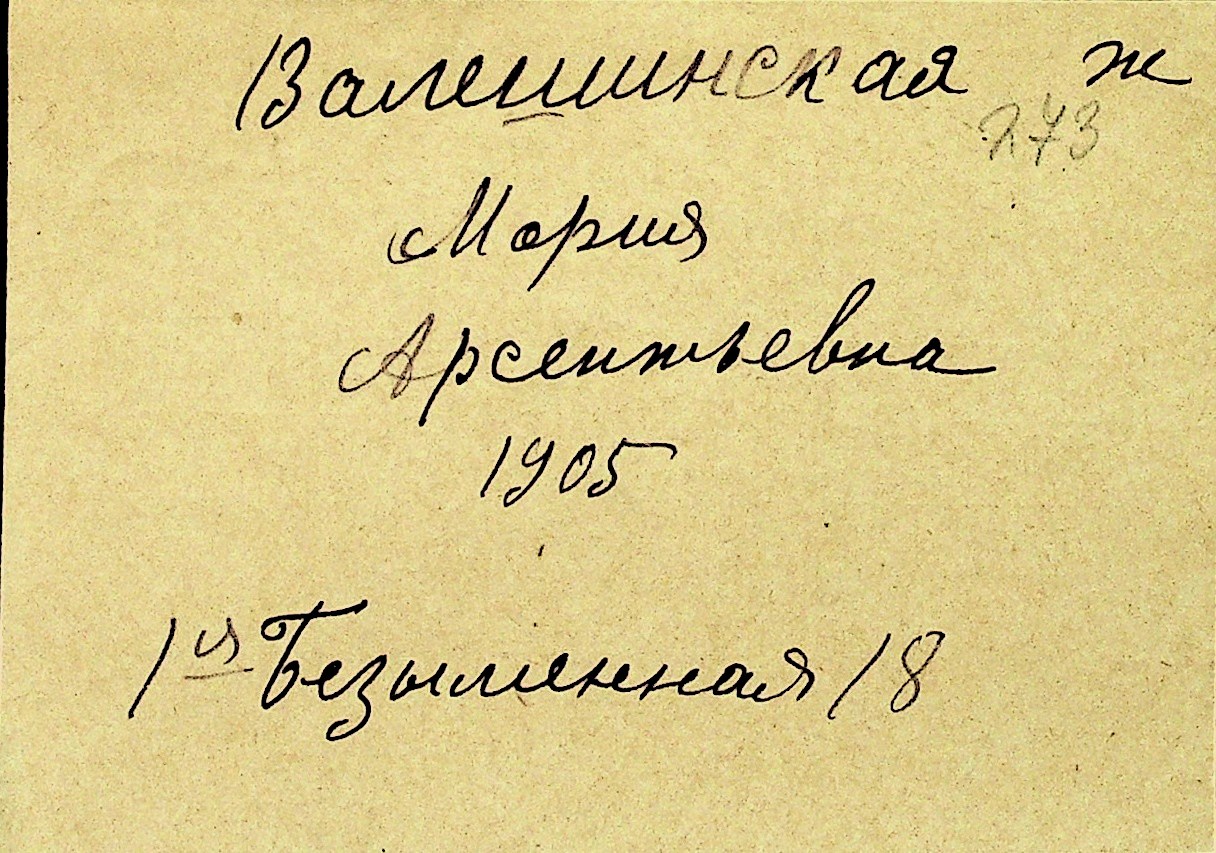 Валешинская ж
273
Мария
Арсентьевна
1905
1ая Безымянная 18